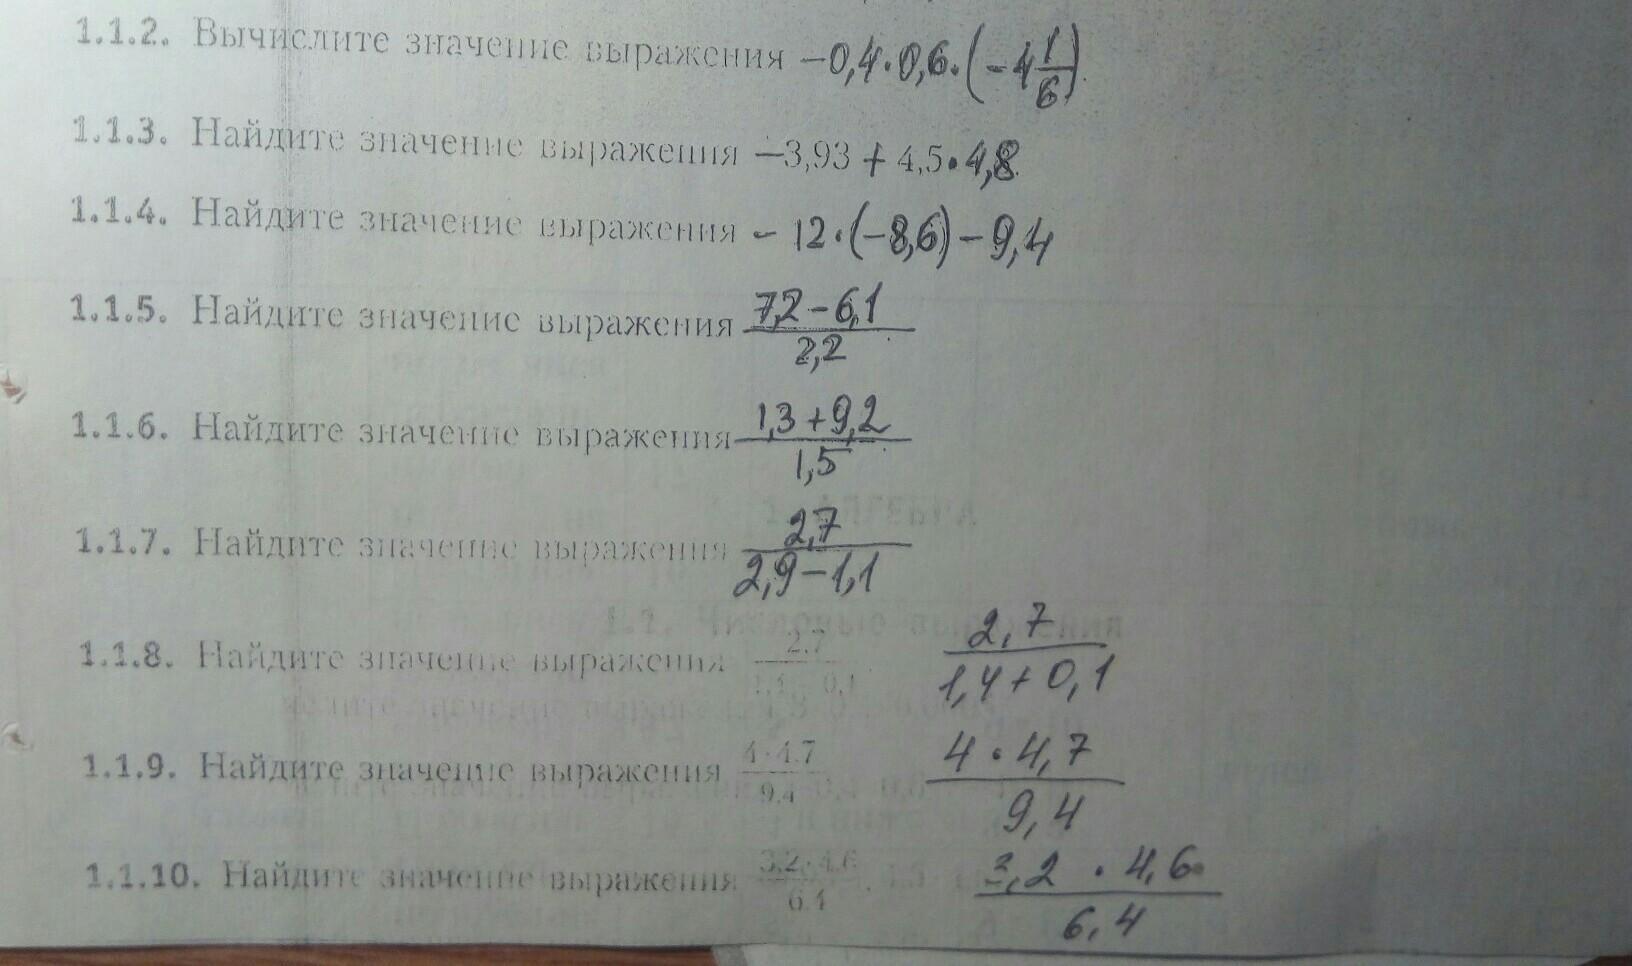 1.1.2. Вычислите значение выражения -0,4·0,6·(-4 1/6).
1.1.3. Найдите значение выражения -3,93 + 4,5·4,8.
1.1.4. Найдите значение выражения - 12·(-8,6) - 9,4
1.1.5. Найдите значение выражения (7,2 - 6,1)/2,2
1.1.6. Найдите значение выражения (1,3 + 9,2)/1,5
1.1.7. Найдите значение выражения 2,7/(2,9 - 1,1)
1.1.8. Найдите значение выражения 2,7/(1,4 + 0,1) 2,7/(1,4 + 0,1)
1.1.9. Найдите значение выражения 4·4,7/9,4 4·4,7/9,4
1.1.10. Найдите значение выражения 3,2·4,6/6,4 3,2·4,6/6,4